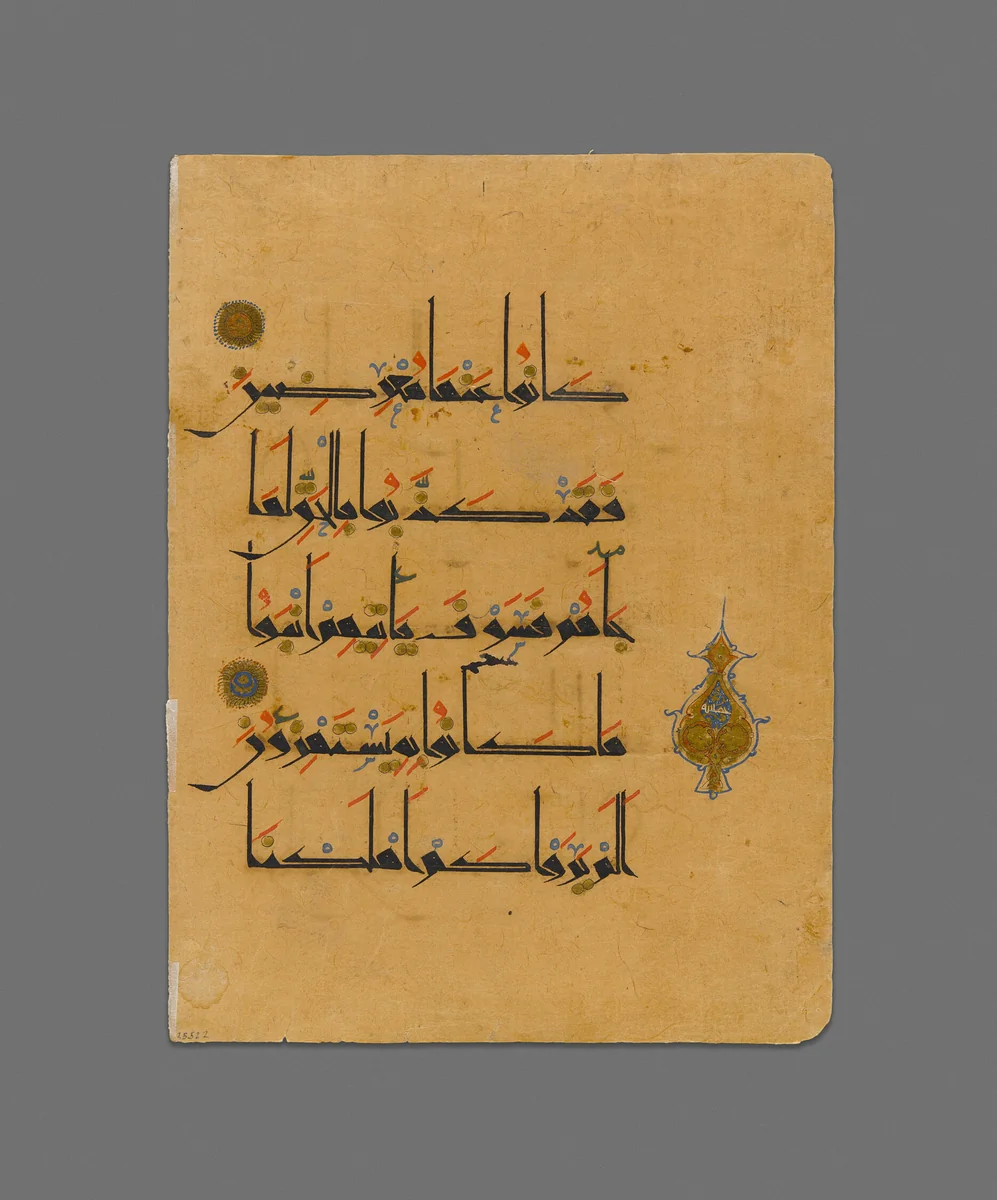 كَانُوا عَنْهَا مُعْرِضِينَ
فَقَدْ كَذَّبُوا بِالْحَقِّ لَمَّا
جَاءَهُمْ فَسَوْفَ يَأْتِيهِمْ أَنْبَٰؤُا
مَا كَانُوا بِهِ يَسْتَهْزِءُونَ
أَلَمْ يَرَوْا كَمْ أَهْلَكْنَا